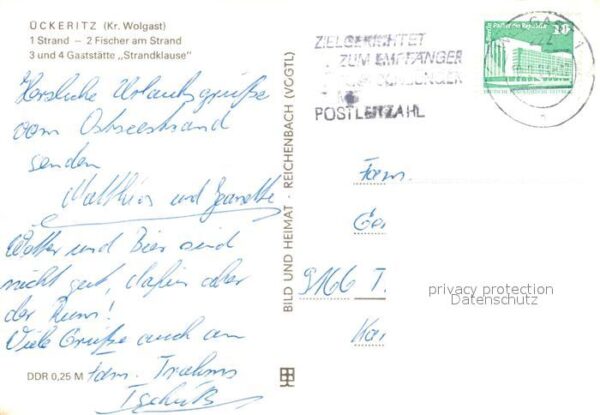 ÜCKERITZ (Kr. Wolgast)
1 Strand – 2 Fischer am Strand
3 und 4 Gaststätte „Strandklause"
Herzliche Urlaubsgrüße
vom Ostseestrand
senden
Matthias und Jeanette.
Wetter und Bier sind
nicht gut, dafür aber
der Rum!
Viele Grüße auch an
Fam.
Tschüß
DDR 0,25 M
BILD UND HEIMAT · REICHENBACH (VOGTL)
ZIELGERICHTET
ZUM EMPFÄNGER
POSTLEITZAHL
Palast der Republik
Fam.
9166 T.
privacy protection
Datenschutz